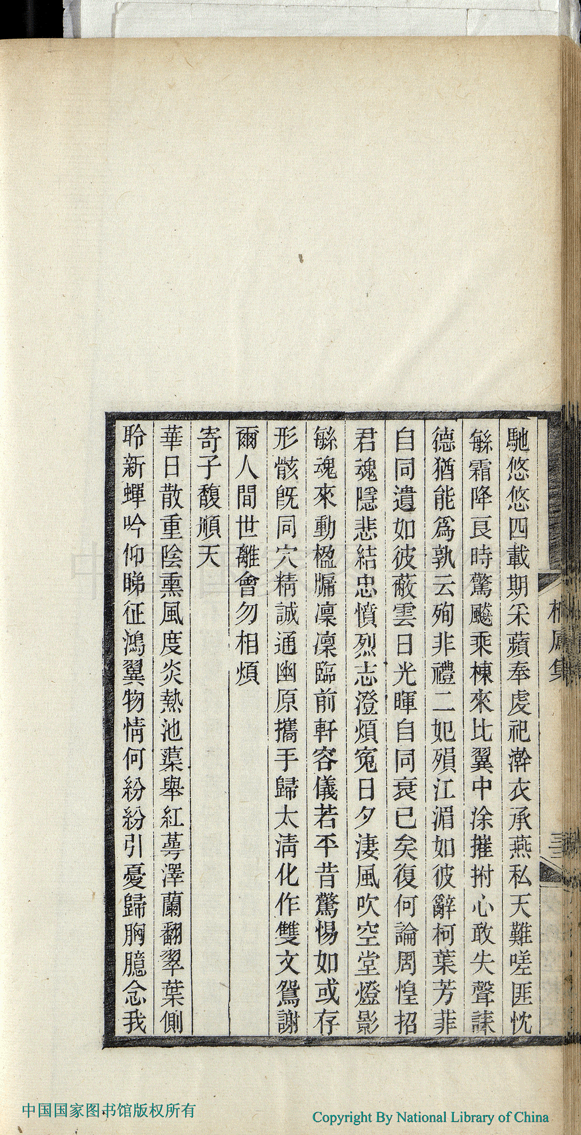 馳悠悠四載期采蘋奉虔祀澣衣承燕私天難嗟匪忱
繇霜降良時驚飈乘棟來比翼中涂摧拊心敢失聲誄
德猶能爲孰云殉非禮二妃殞江湄如彼辭柯葉芳菲
自同遺如彼蔽雲日光暉自同衰已矣復何論周惶招
君魂隱悲結忠憤烈志澄煩冤日夕淒風吹空堂燈影
繇魂來動楹牖凜凜臨前軒容儀若平昔驚惕如或存
形骸旣同穴精誠通幽原攜手歸太淸化作雙文鴛謝
爾人間世離會勿相煩
寄子馥順天
華日散重陰熏風度炎熱池蕖舉紅萼澤蘭翻翠葉側
聆新蟬吟仰睇征鴻翼物情何紛紛引憂歸胸臆念我
中国国家图书馆版权所有
Copyright By National Library of China